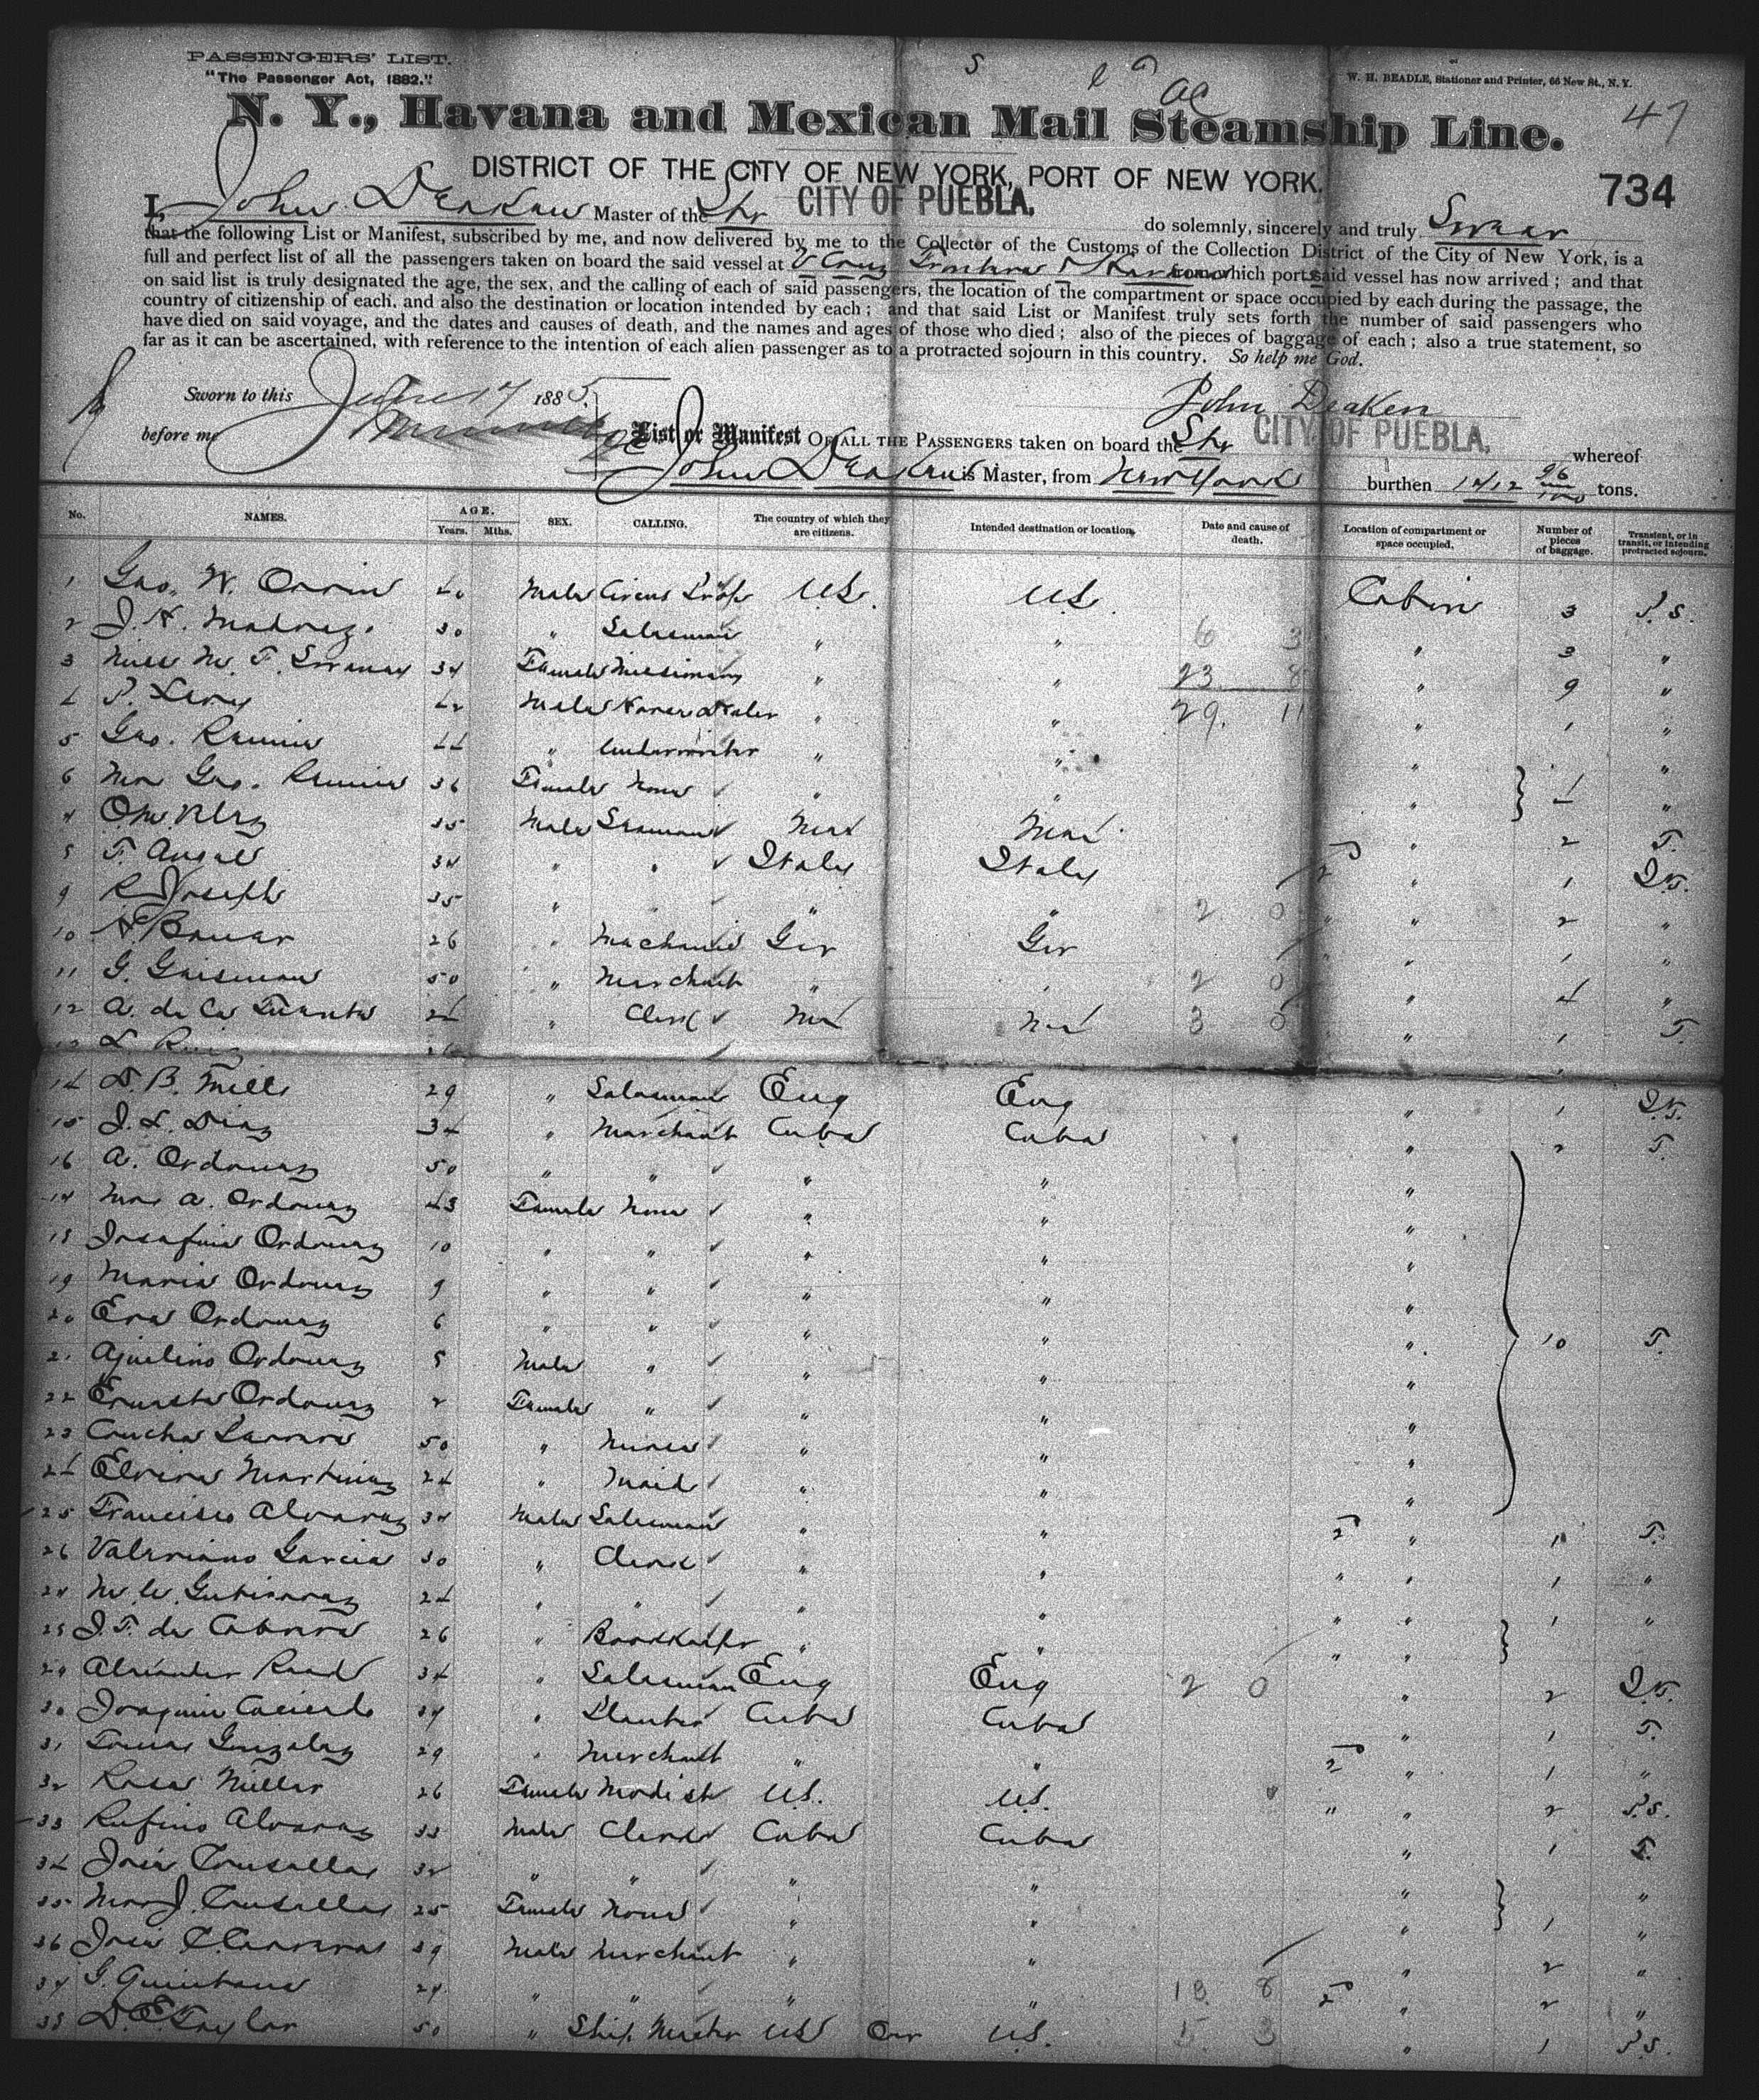 PASSENGERS' LIST.
"The Passenger Act, 1882."
W. H. BEADLE, Stationer and Printer, 66 New St., N. Y.
47
N. Y., Havana and Mexican Mail Steamship Line.
DISTRICT OF THE CITY OF NEW YORK, PORT OF NEW YORK.
734
I, John Deaken Master of the Str CITY OF PUEBLA. do solemnly, sincerely and truly Swear
that the following List or Manifest, subscribed by me, and now delivered by me to the Collector of the Customs of the Collection District of the City of New York, is a
full and perfect list of all the passengers taken on board the said vessel at V Cruz Frontera & Havana from which port said vessel has now arrived; and that
on said list is truly designated the age, the sex, and the calling of each of said passengers, the location of the compartment or space occupied by each during the passage, the
country of citizenship of each, and also the destination or location intended by each; and that said List or Manifest truly sets forth the number of said passengers who
have died on said voyage, and the dates and causes of death, and the names and ages of those who died; also of the pieces of baggage of each; also a true statement, so
far as it can be ascertained, with reference to the intention of each alien passenger as to a protracted sojourn in this country. So help me God.
Sworn to this June 17 1885.
John Deaken
before me
List or Manifest OF ALL THE PASSENGERS taken on board the Str CITY OF PUEBLA, whereof
John Deaken is Master, from New York burthen tons.
No. NAMES. AGE. Years. Mths. SEX. CALLING. The country of which they are citizens. Intended destination or location. Date and cause of death. Location of compartment or space occupied. Number of pieces of baggage. Transient, or in transit, or intending protracted sojourn.
1 Geo. W. Orrin 40 Male Circus Prop U.S. U.S. Cabin 3 P.S.
2 30 " Salesman " " " 3 "
3 Miss M. F. 34 Female Missionary " " " 9 "
4 P. Levy 42 Male " " " 1 "
5 Geo. 44 " Underwriter " " " "
6 Mrs Geo. 36 Female None " " " 4 "
7 35 Male Seaman Mex Mex " 2 T.
8 F. Angel 34 " " Italy Italy " 1 In.
9 R Joseph 35 " " " " " 2 "
10 Bauer 26 " Mechanic Ger Ger " 1 "
11 G. Gaisman 50 " Merchant " " " 4 "
12 A. de la Fuente 24 " Clerk Mex Mex " 1 T.
13 L Ruiz
14 D. B. Mills 29 " Salesman Eng Eng " 1 In.
15 J. L. Diaz 34 " Merchant Cuba Cuba " 2 T.
16 A. Ordonez 50 " " " " "
17 Mrs A. Ordonez 43 Female None " " "
18 Josefina Ordonez 10 " " " " "
19 Maria Ordonez 9 " " " " "
20 Eva Ordonez 6 " " " " " 10 T.
21 Aquilino Ordonez 5 Male " " " "
22 Ernesta Ordonez 2 Female " " " "
23 Concha 50 " Nurse " " "
24 Elvira Martinez 24 " Maid " " "
25 Francisco Alvarez 34 Male Salesman " " " 1 T.
26 Valeriano Garcia 30 " Clerk " " " 1 "
27 Gutierrez 24 " " " " " 1 "
28 J. F. de Cabrera 26 " Bookkeeper " " "
29 Alexander Read 34 " Salesman Eng Eng " 2 In.
30 Joaquin 34 " Planter Cuba Cuba " 1 T.
31 Tomas Gonzalez 29 " Merchant " " " 1 "
32 Rosa Miller 26 Female Modiste U.S. U.S. " 2 P.S.
33 Rufino Alvarez 33 Male Clerk Cuba Cuba " 1 T.
34 Jose Crusellas 32 " " " " " "
35 Mrs J. Crusellas 25 Female None " " " 1 "
36 Jose 39 Male Merchant " " " 2 "
37 G. Quintana 29 " " " " " 2 "
38 D. E. Taylor 50 " Ship Master US U.S. " 1 P.S.